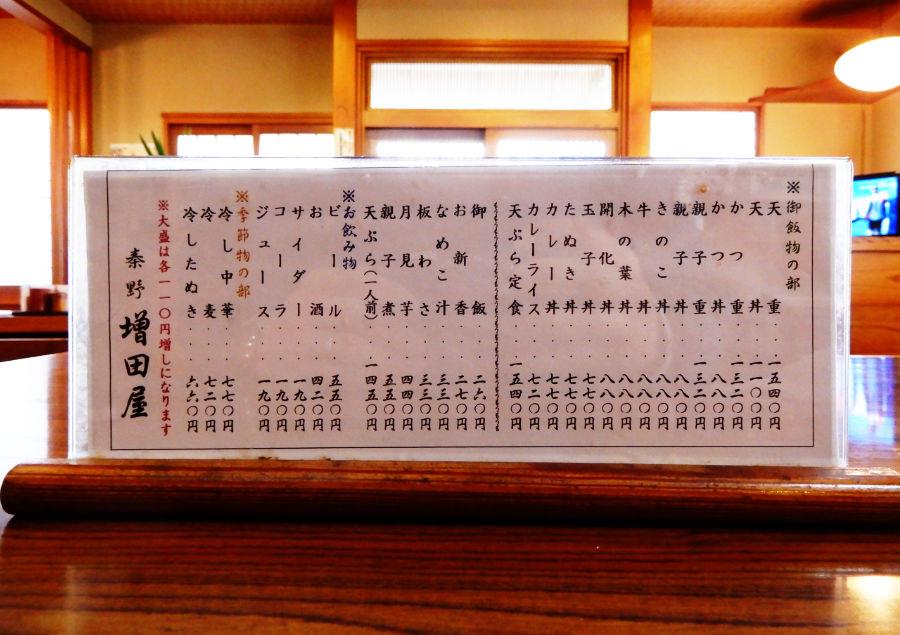 ※御飯物の部
天重・・・一五四〇円
天丼・・・一一〇〇円
かつ重・・・一三二〇円
かつ丼・・・八八〇円
親子重・・・一三二〇円
親子丼・・・八八〇円
きのこ丼・・・八八〇円
牛丼・・・八八〇円
木の葉丼・・・八八〇円
開化丼・・・八八〇円
玉子丼・・・七七〇円
たぬき丼・・・七七〇円
カレー丼・・・七七〇円
カレーライス・・・七二〇円
天ぷら定食・・・一五四〇円
御飯・・・二六〇円
お新香・・・二七〇円
なめこ汁・・・三三〇円
板わさ・・・三三〇円
月見芋・・・四四〇円
親子煮・・・五五〇円
天ぷら(一人前)・・・一四五〇円
※お飲み物
ビール・・・五五〇円
お酒・・・四二〇円
サイダー・・・一九〇円
コーラ・・・一九〇円
ジュース・・・一九〇円
※季節物の部
冷し中華・・・七七〇円
冷し麦・・・七二〇円
冷したぬき・・・六六〇円
※大盛は各一一〇円増しになります
秦野 増田屋